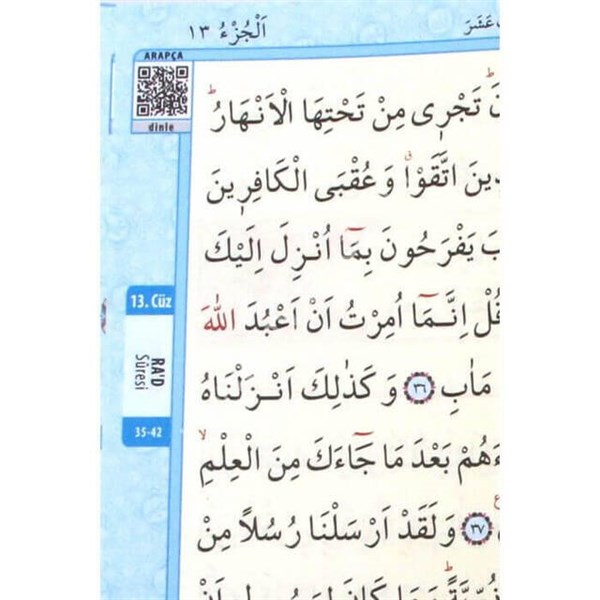 اَلْجُزْءُ ١٣
عَشَرَ
ARAPÇA
dinle
تَجْرٖى مِنْ تَحْتِهَا الْاَنْهَارُ
اتَّقَوْا وَعُقْبَى الْكَافِرٖينَ
يَفْرَحُونَ بِمَٓا اُنْزِلَ اِلَيْكَ
قُلْ اِنَّمَٓا اُمِرْتُ اَنْ اَعْبُدَ اللّٰهَ
مَاٰبِ ٣٦ وَكَذٰلِكَ اَنْزَلْنَاهُ
بَعْدَ مَا جَٓاءَكَ مِنَ الْعِلْمِ
٣٧ وَلَقَدْ اَرْسَلْنَا رُسُلًا مِنْ
13. Cüz
RA'D
Sûresi
35-42